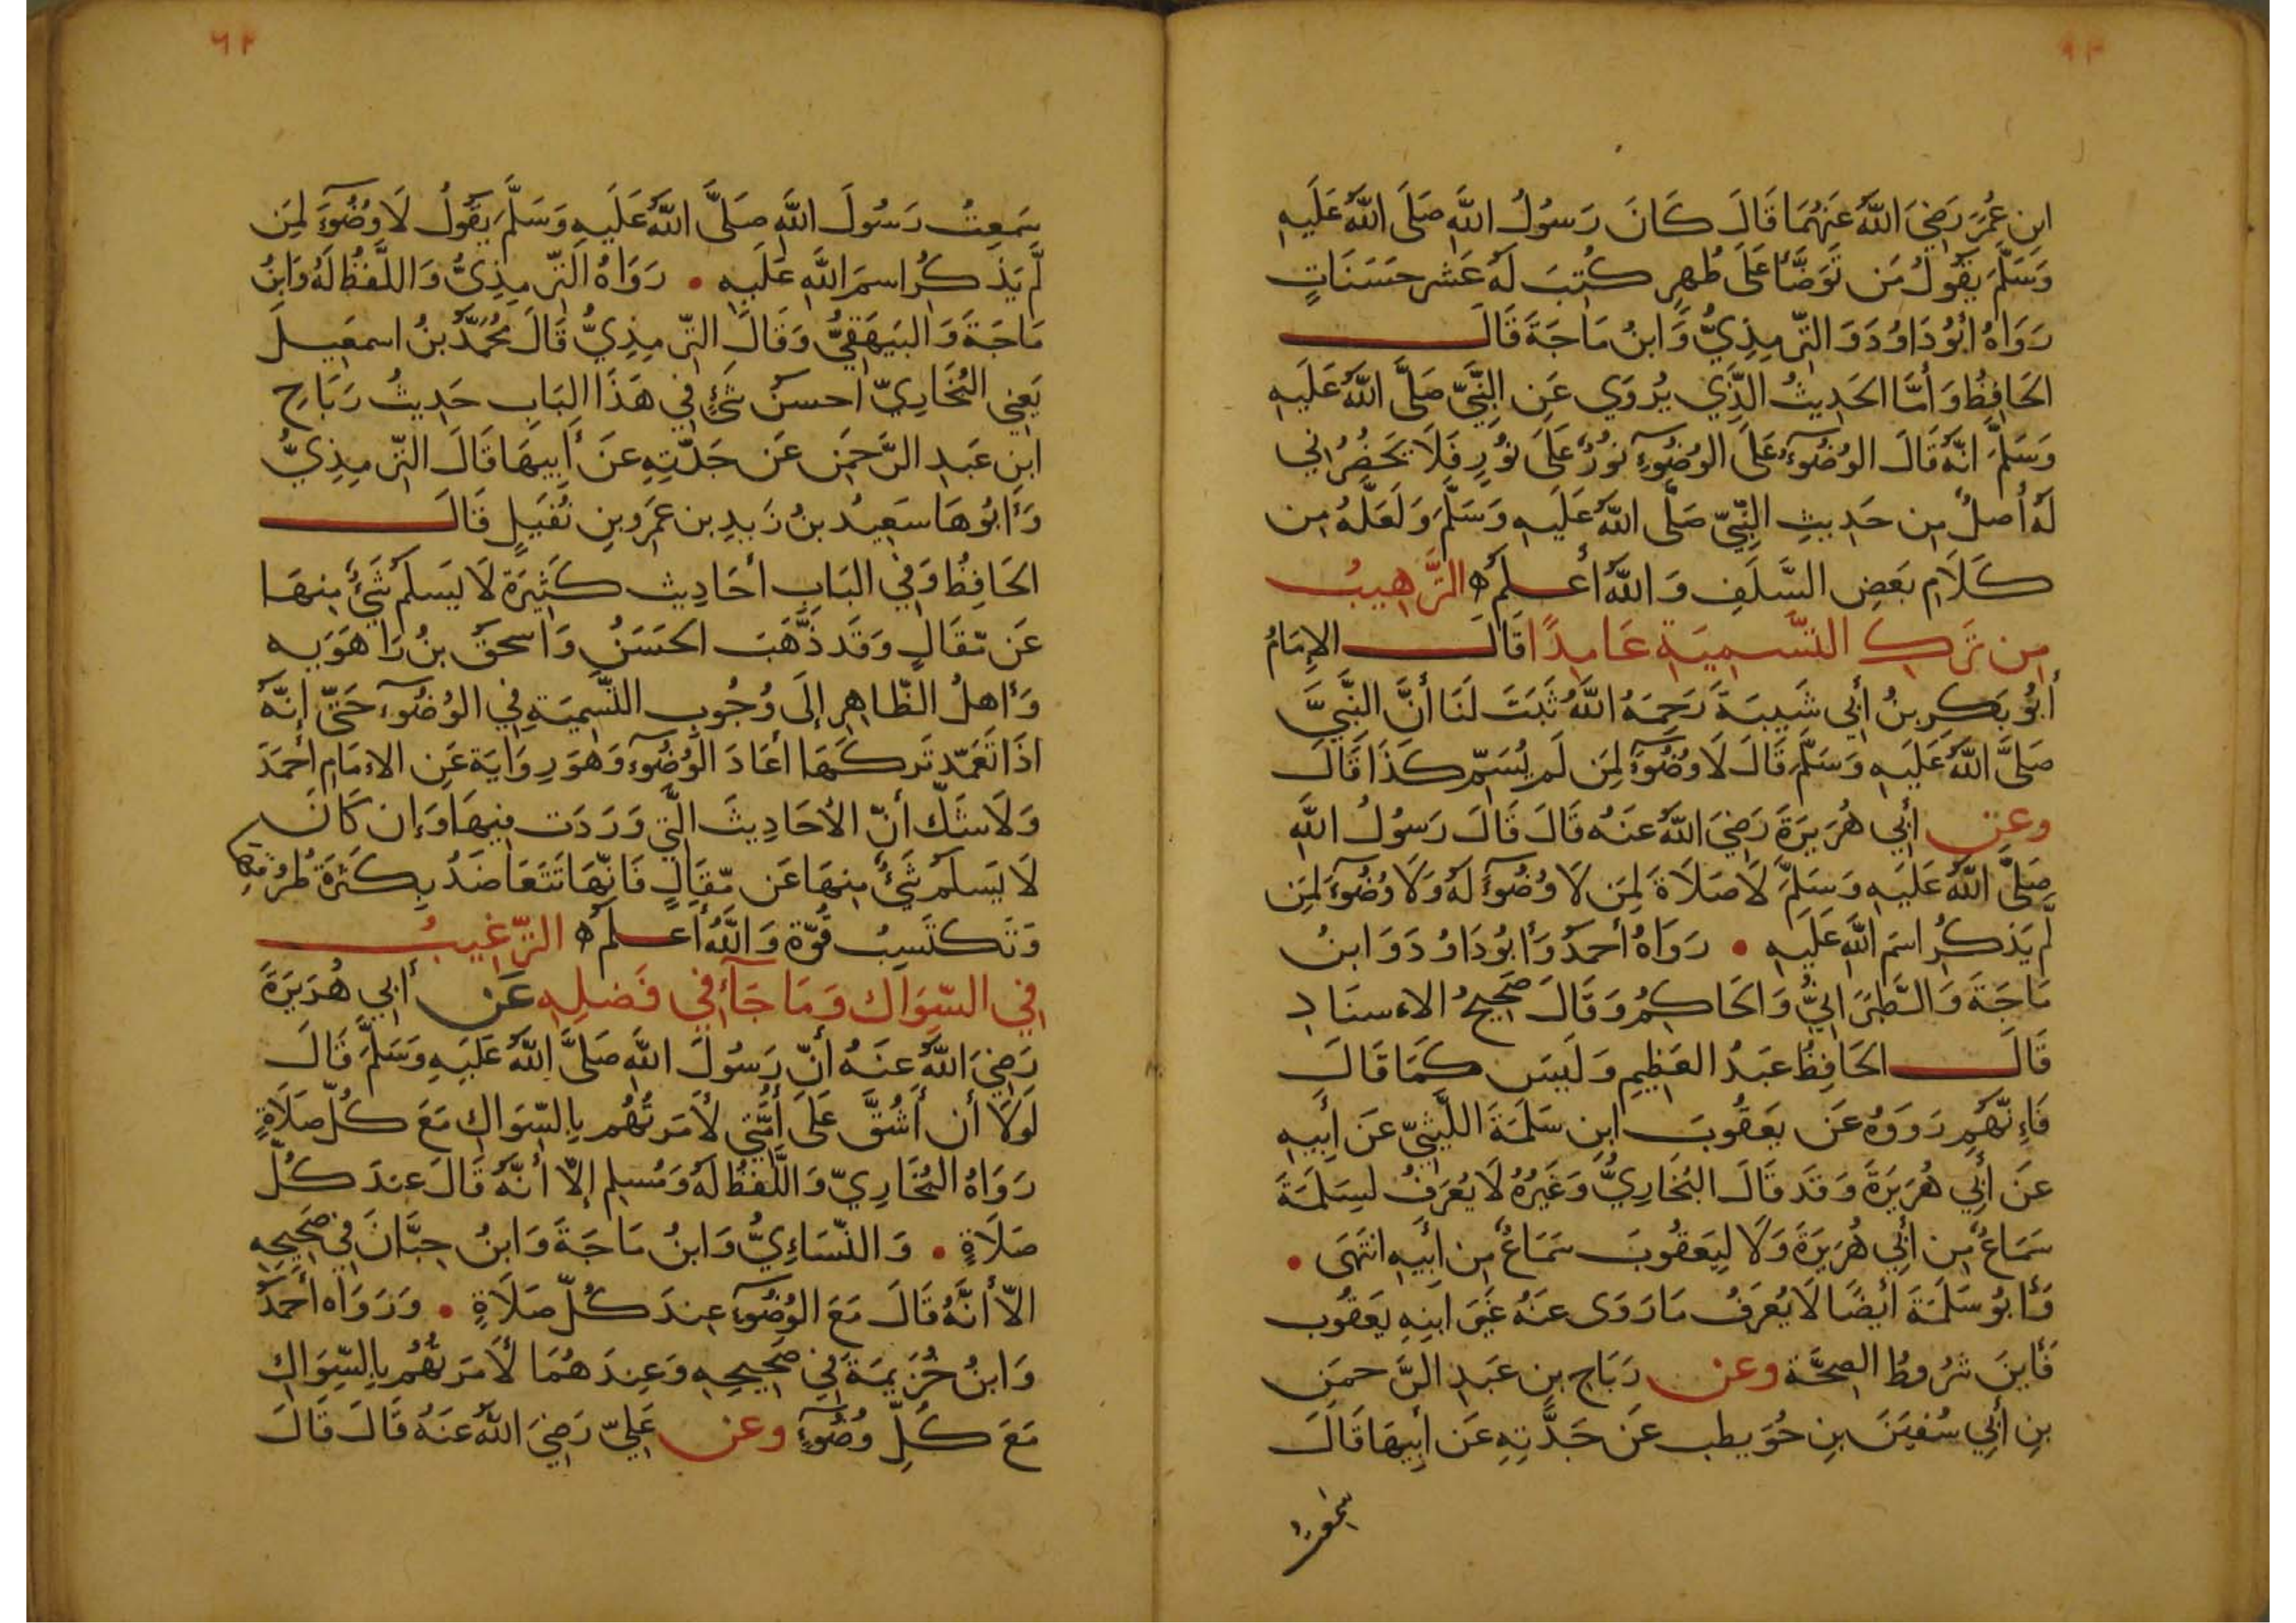 ٦٢
ابنِ عُمَرَ رَضِيَ اللهُ عَنهُمَا قَالَ كَانَ رَسُولُ اللهِ صَلَّى اللهُ عَلَيهِ
وَسَلَّمَ يَقُولُ مَن تَوَضَّأَ عَلَى طُهرٍ كُتِبَ لَهُ عَشر حَسَنَاتٍ
رَوَاهُ أَبُو دَاوُدَ وَ التِّرمِذِيُّ وَابنُ مَاجَةَ قَالَ
الحَافِظُ وَأَمَّا الحَدِيثُ الَّذِي يُروَي عَنِ النَّبِيِّ صَلَّى اللهُ عَلَيهِ
وَسَلَّمَ انَّهُ قَالَ الوُضُوءُ عَلَى الوُضُوءِ نُورٌ عَلَى نُورٍ فَلَا يَحضُرُنِي
لَهُ أَصلٌ مِن حَدِيثِ النَّبِيِّ صَلَّى اللهُ عَلَيهِ وَسَلَّمَ وَلَعَلَّهُ مِن
كَلَامِ بَعضِ السَّلَفِ وَاللهُ أَعلَمُ ه التَّرهِيبُ
مِن تَركِ التَّسمِيَةِ عَامِدًا قَالَ الإِمَامُ
أَبُو بَكرِ بنُ أَبِي شَيبَةَ رَحِمَهُ اللهُ ثَبَتَ لَنَا أَنَّ النَّبِيَّ
صَلَّى اللهُ عَلَيهِ وَسَلَّمَ قَالَ لَا وُضُوءَ لِمَن لَم يُسَمِّ كَذَا قَالَ
وعن أَبِي هُرَيرَةَ رَضِيَ اللهُ عَنهُ قَالَ قَالَ رَسُولُ اللهِ
صَلَّى اللهُ عَلَيهِ وَسَلَّمَ لَا صَلَاةَ لِمَن لَا وُضُوءَ لَهُ وَلَا وُضُوءَ لِمَن
لَّم يَذكُرِ اسمَ اللهِ عَلَيهِ • رَوَاهُ أَحمَدُ وَأَبُو دَاوُدَ وَ ابنُ
مَاجَةَ وَالطَّبَرَانِيُّ وَالحَاكِمُ وَقَالَ صَحِيحُ الاءسنَادِ
قَالَ الحَافِظُ عَبدُ العَظِيمِ وَلَيسَ كَمَا قَالَ
فَاءِنَّهُم رَوَوهُ عَن يَعقُوبَ ابنِ سَلَمَةَ اللَّيثِيِّ عَن أَبِيهِ
عَن أَبِي هُرَيرَةَ وَقَد قَالَ البُخَارِيُّ وَغَيرُهُ لَا يُعرَفُ لِسَلَمَةَ
سَمَاعٌ مِن أَبِي هُرَيرَةَ وَلَا لِيَعقُوبَ سَمَاعٌ مِن أَبِيهِ انتَهَى •
وَأَبُو سَلَمَةَ أَيضًا لَا يُعرَفُ مَا رَوَى عَنهُ غَيرَ ابنِهِ يَعقُوب
فَأَينَ شُرُوطُ الصِحَّة وعن رَبَاحِ بنِ عَبدِ الرَّحمَنِ
بنِ أَبِي سُفيَنَ بنِ حُوَيطِب عَن جَدَّتِهِ عَن أَبِيهَا قَالَ
سَمِعتُ
٦٢
سَمِعتُ رَسُولَ اللهِ صَلَّى اللهُ عَلَيهِ وَسَلَّمَ يَقُولُ لَا وُضُوءَ لِمَن
لَّم يَذكُرِ اسمَ اللهِ عَلَيهِ • رَوَاهُ التِّرمِذِيُّ وَاللَّفظُ لَهُ وَابنُ
مَاجَةَ وَالبَيهَقِيُّ وَقَالَ التِّرمِذِيُّ قَالَ مُحَمَّدُ بنُ اسمَعِيلَ
يَعنِي البُخَارِيّ أَحسَنُ شَئٍ فِي هَذَا البَابِ حَدِيثُ رَبَاحِ
ابنِ عَبدِ الرَّحمَنِ عَن جَدَّتِهِ عَن أَبِيهَا قَالَ التِّرمِذِيُّ
وَأَبُوهَا سَعِيدُ بنُ زَيدِ بن عَمرِو بنِ نُفَيلٍ قَالَ
الحَافِظُ وَفِي البَابِ أَحَادِيث كَثِيرَة لَا يَسلَمُ شَئٌ مِنهَا
عَن مَّقَالٍ وَقَد ذَّهَبَ الحَسَنُ وَاسحَقُ بنُ رَاهَوَيه
وَأَهلُ الظَّاهِرِ إِلَى وُجُوبِ التَّسمِيَةِ فِي الوُضُوءِ حَتَّى إِنَّهُ
اذَا تَعَمَّد تَركَهَا أَعَادَ الوُضُوءَ وَهَوَ رِوَايَة عَنِ الاءمَامِ أَحمَدَ
وَلَا شَكَّ أَنَّ الأَحَادِيثَ الَّتِي وَرَدَت فِيهَا وَإِن كَانَ
لَا يَسلَمُ شَئٌ مِنهَا عَن مَّقَالٍ فَانَّهَا تَتَعَاضَدُ بِكَثرَةِ طُرُقِهَا
وَتَكتَسِبُ قُوَّة وَاللهُ أَعلَمُ ه التَّرغِيبُ
فِي السِّوَاك وَمَا جَآءَ فِي فَضلِهِ عَن أَبِي هُرَيرَةَ
رَضِيَ اللهُ عَنهُ أَنَّ رَسُولَ اللهِ صَلَّى اللهُ عَلَيهِ وَسَلَّمَ قَالَ
لَولَا أَن أَشُقَّ عَلَى أُمَّتِي لَأَمَرتُهُم بِالسِّوَاكِ مَعَ كُلِّ صَلَاةٍ
رَوَاهُ البُخَارِيّ وَاللَّفظُ لَهُ وَمُسلِم إِلَّا أَنَّهُ قَالَ عِندَ كُلِّ
صَلَاةٍ • وَالنَّسَاءِيُّ وَابنُ مَاجَةَ وَابنُ حِبَّانَ فِي صَحِيحِهِ
الَّا أَنَّهُ قَالَ مَعَ الوُضُوءِ عِندَ كُلِّ صَلَاةٍ • وَرَوَاه أَحمَدُ
وَابنُ خُزَيمَةَ فِي صَحِيحِهِ وَعِندَهُمَا لَأَمَرتُهُم بِالسِّوَاكِ
مَعَ كُلِّ وُضُوءٍ وعن عَلِيٍّ رَضِيَ اللهُ عَنهُ قَالَ قَالَ